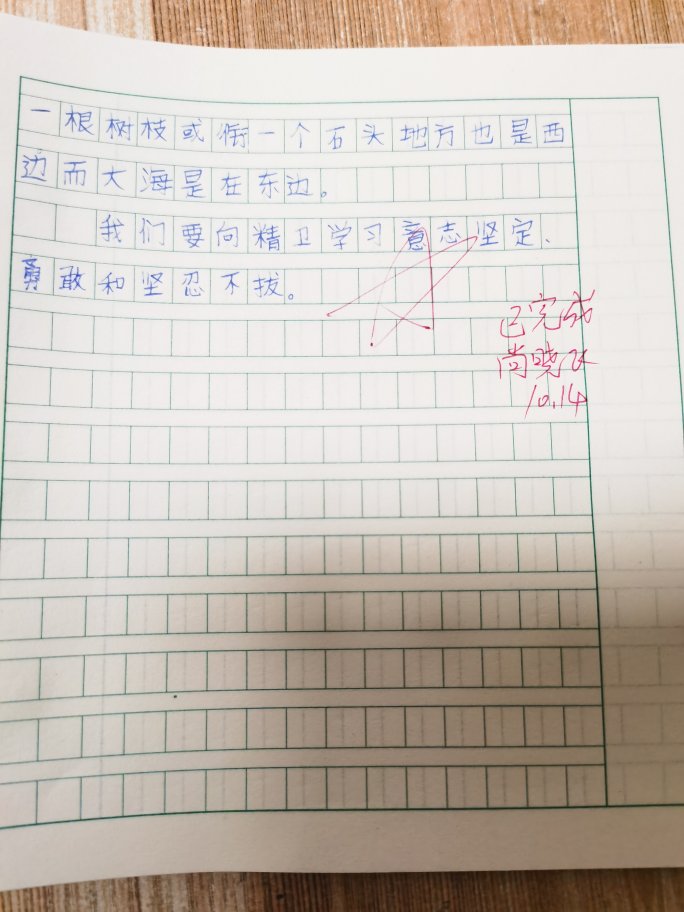 一根树枝或衔一个石头地方也是西
边而大海是在东边。
我们要向精卫学习意志坚定、
勇敢和坚忍不拔。
已完成
尚晓飞
10.14